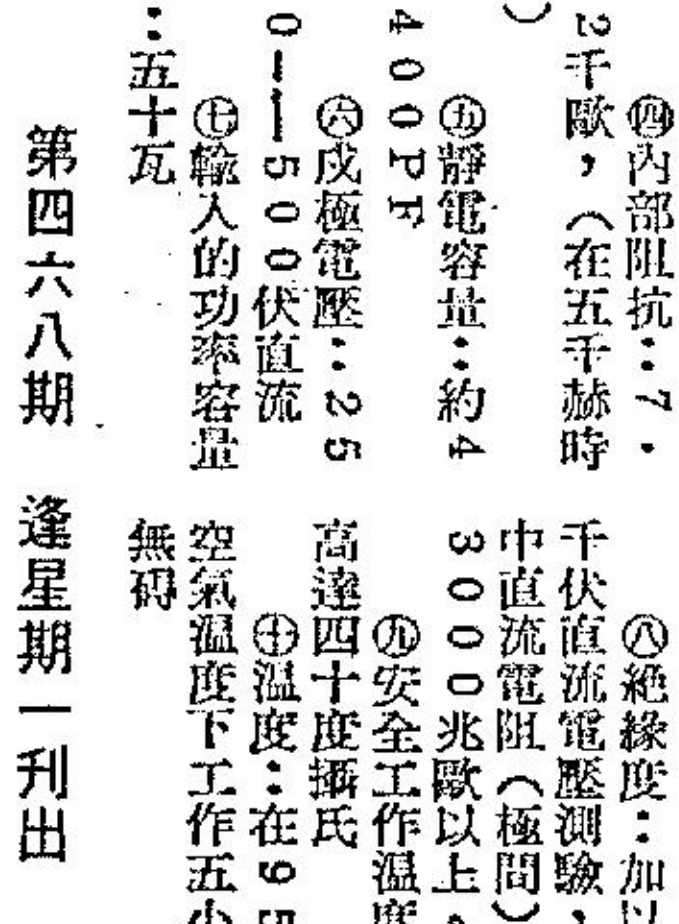 ㊃內部阻抗：7．
2千歐，（在五千赫時
）
㊄靜電容量：約4
400PF
㊅成極電壓：25
0——500伏直流
㊆輸入的功率容量
：五十瓦
㊇絕緣度：加以
千伏直流電壓測驗，
中直流電阻（極間）
3000兆歐以上。
㊈安全工作溫度
高達四十度攝氏
㊉溫度：在95
空氣溫度下工作五小
無碍
第四六八期　逢星期一刊出